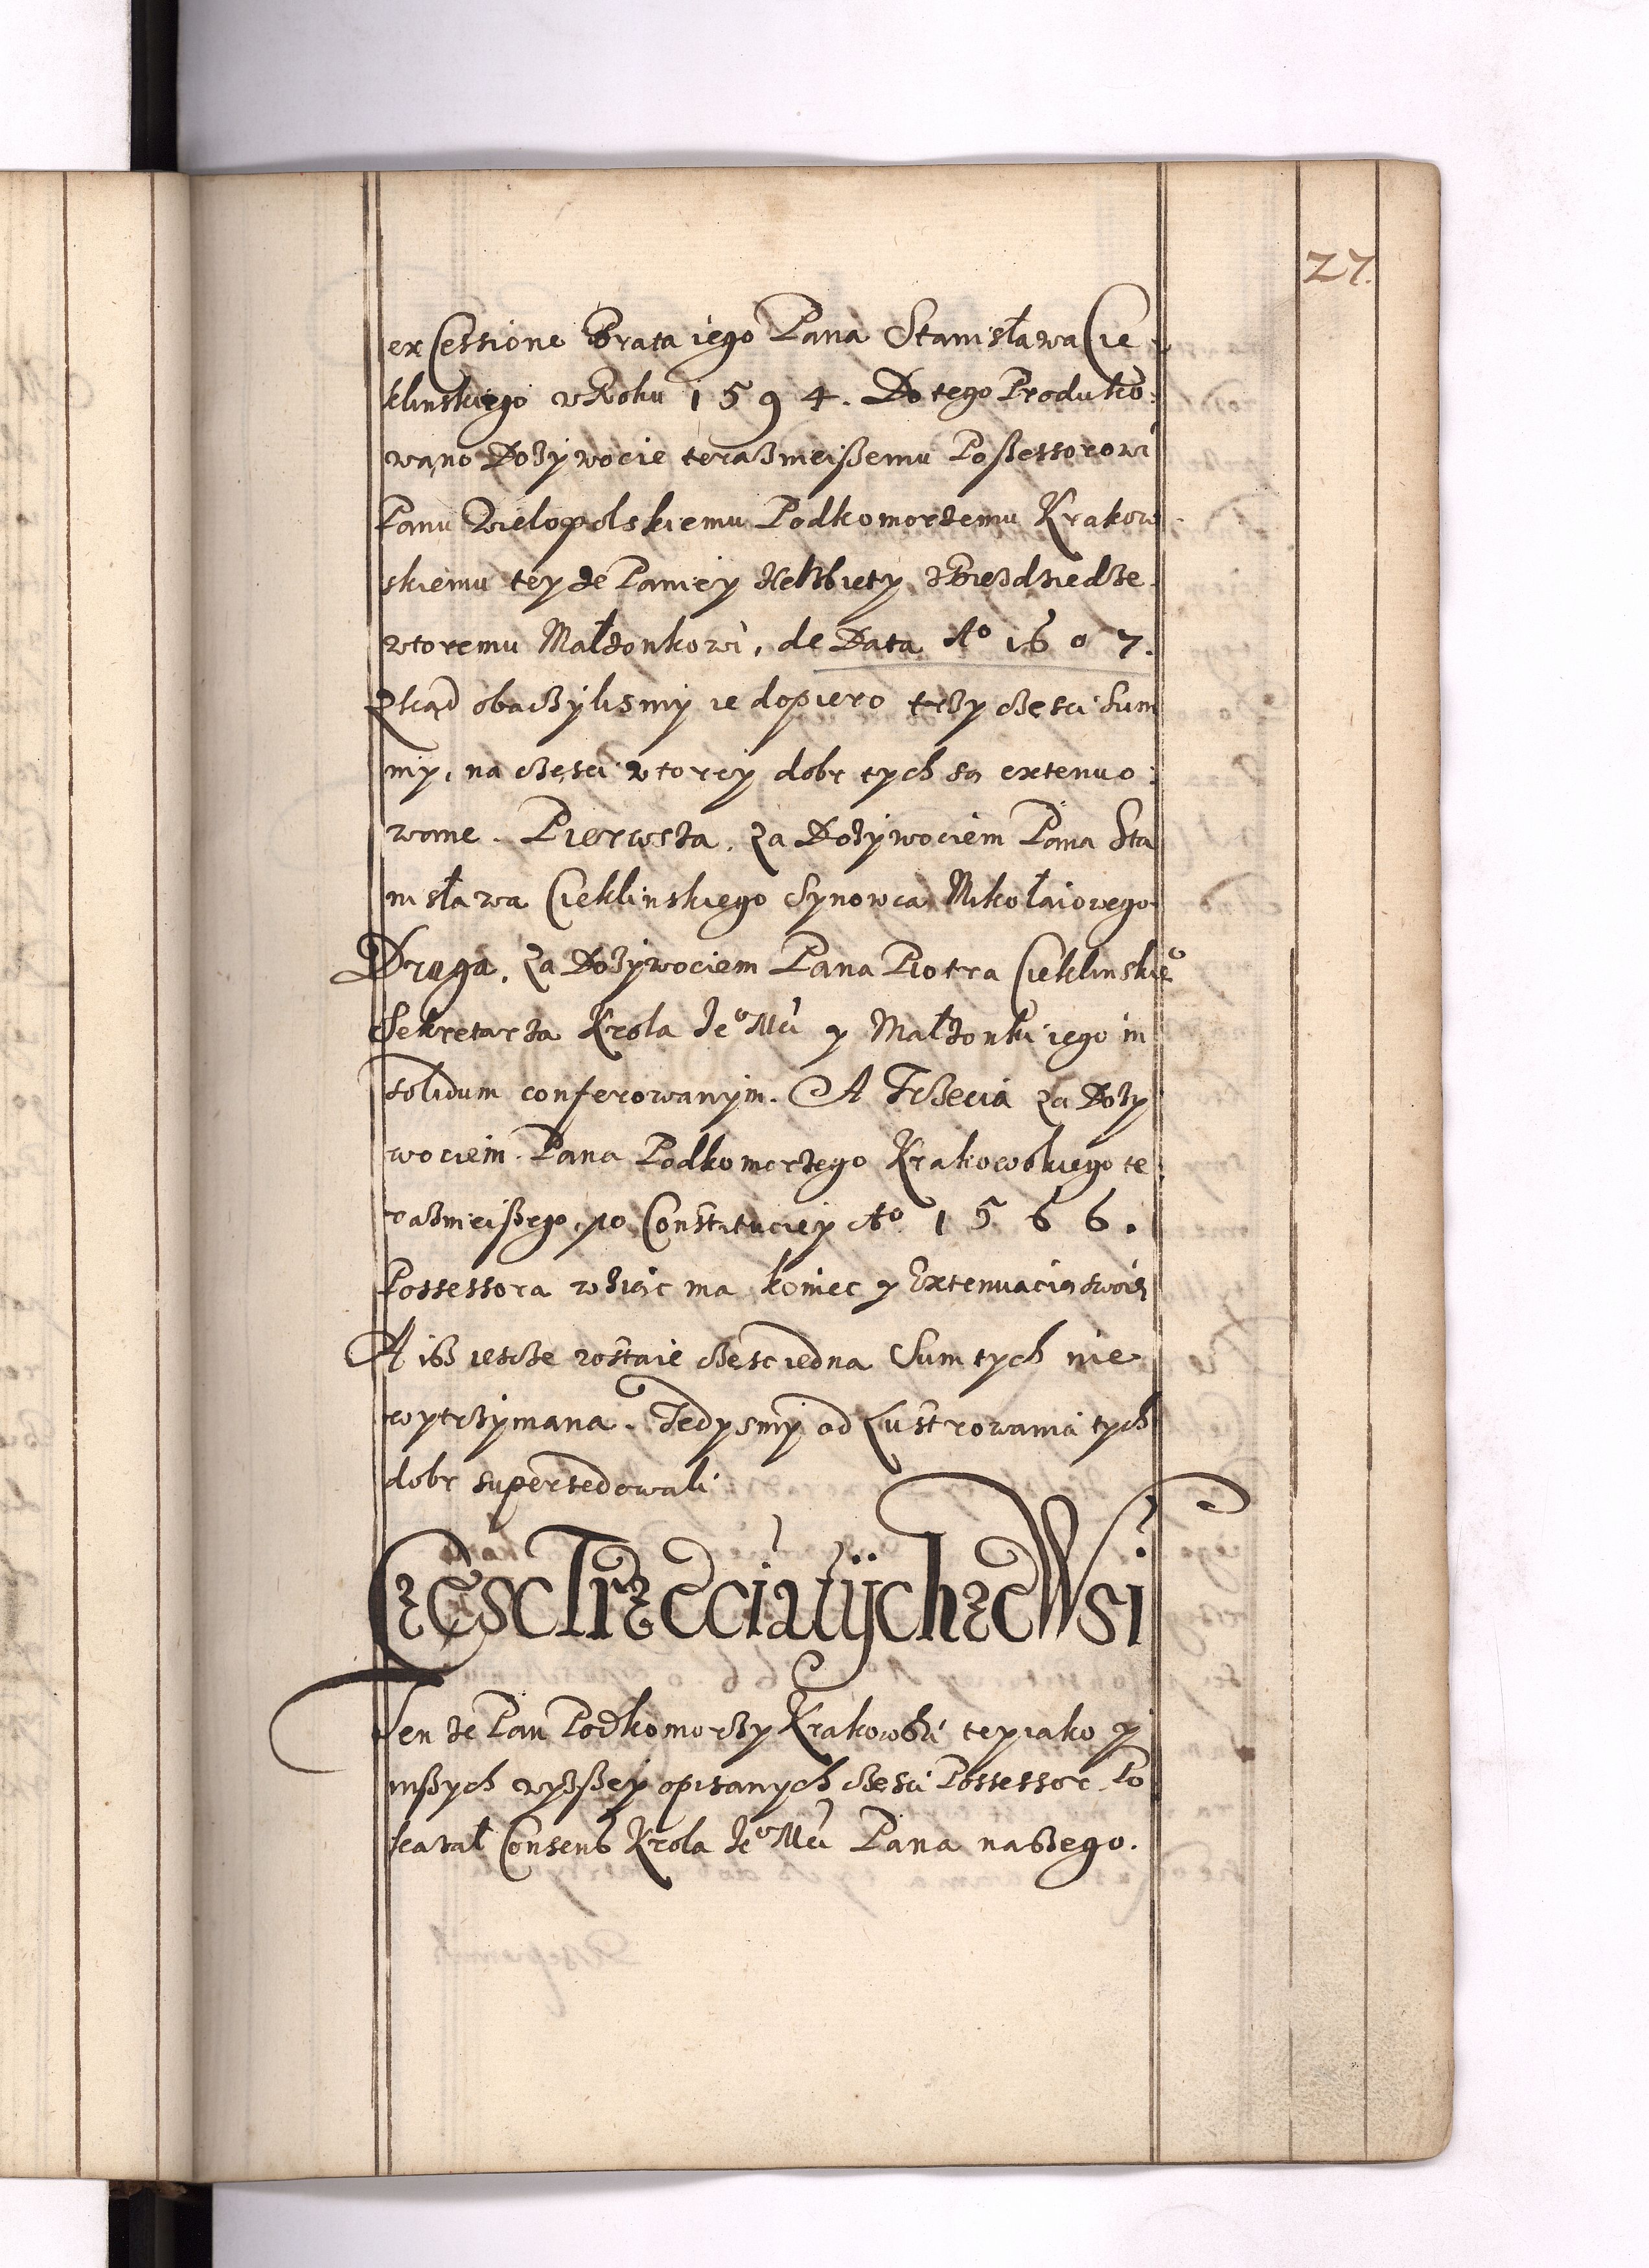 27.
ex Cessione Brata iego Pana Stanisława Cie
klinskiego w Roku 1594. Do tego Produko:
wano Dożywocie teraznieißemu Poßessorowi
Panu Wielopolskiemu Podkomorzemu Krakow
skiemu teyże Paniey Helzbiety
wtoremu Małżonkowi, de Data Aº 1607.
Zkąd obaczylismy ie dopiero trzy częsci Sum
my, na częsci wtorey dobr tych są extenuo:
wane. Pierwsza, za Dożywociem Pana Sta
nisława Cieklinskiego Synowca Mikołaiowego
Druga, za Dożywociem Pana Piotra Cieklinskieº
Sekretarza Krola Jeº Mći y Małżonki iego in
solidum conferowanym. A Trzecia za Doży
wociem Pana Podkomorzego Krakowskiego te
raznieißego, po Constituciey Aº 1566.
Possessora wziąc ma koniec y Extenuacią swoię
A iż iescze zostaie częsc iedna Sum tych nie
wytrzymana. Tedysmy od Lustrowania tych
dobr supersedowali
Częsc Trzecia tychze Wsi
Tenze Pan Podkomorzy Krakowski tey iako y
inßych wyżßey opisanych częsci Possessor, Po
kazał Consens Krola Jeº Mći Pana naszego.